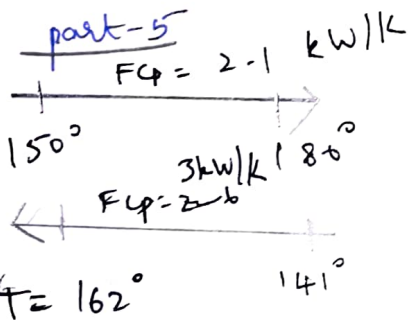 part-5
FCp = 2-1 kW/K
150° 180°
3kW/K
FCp =
T = 162° 141°